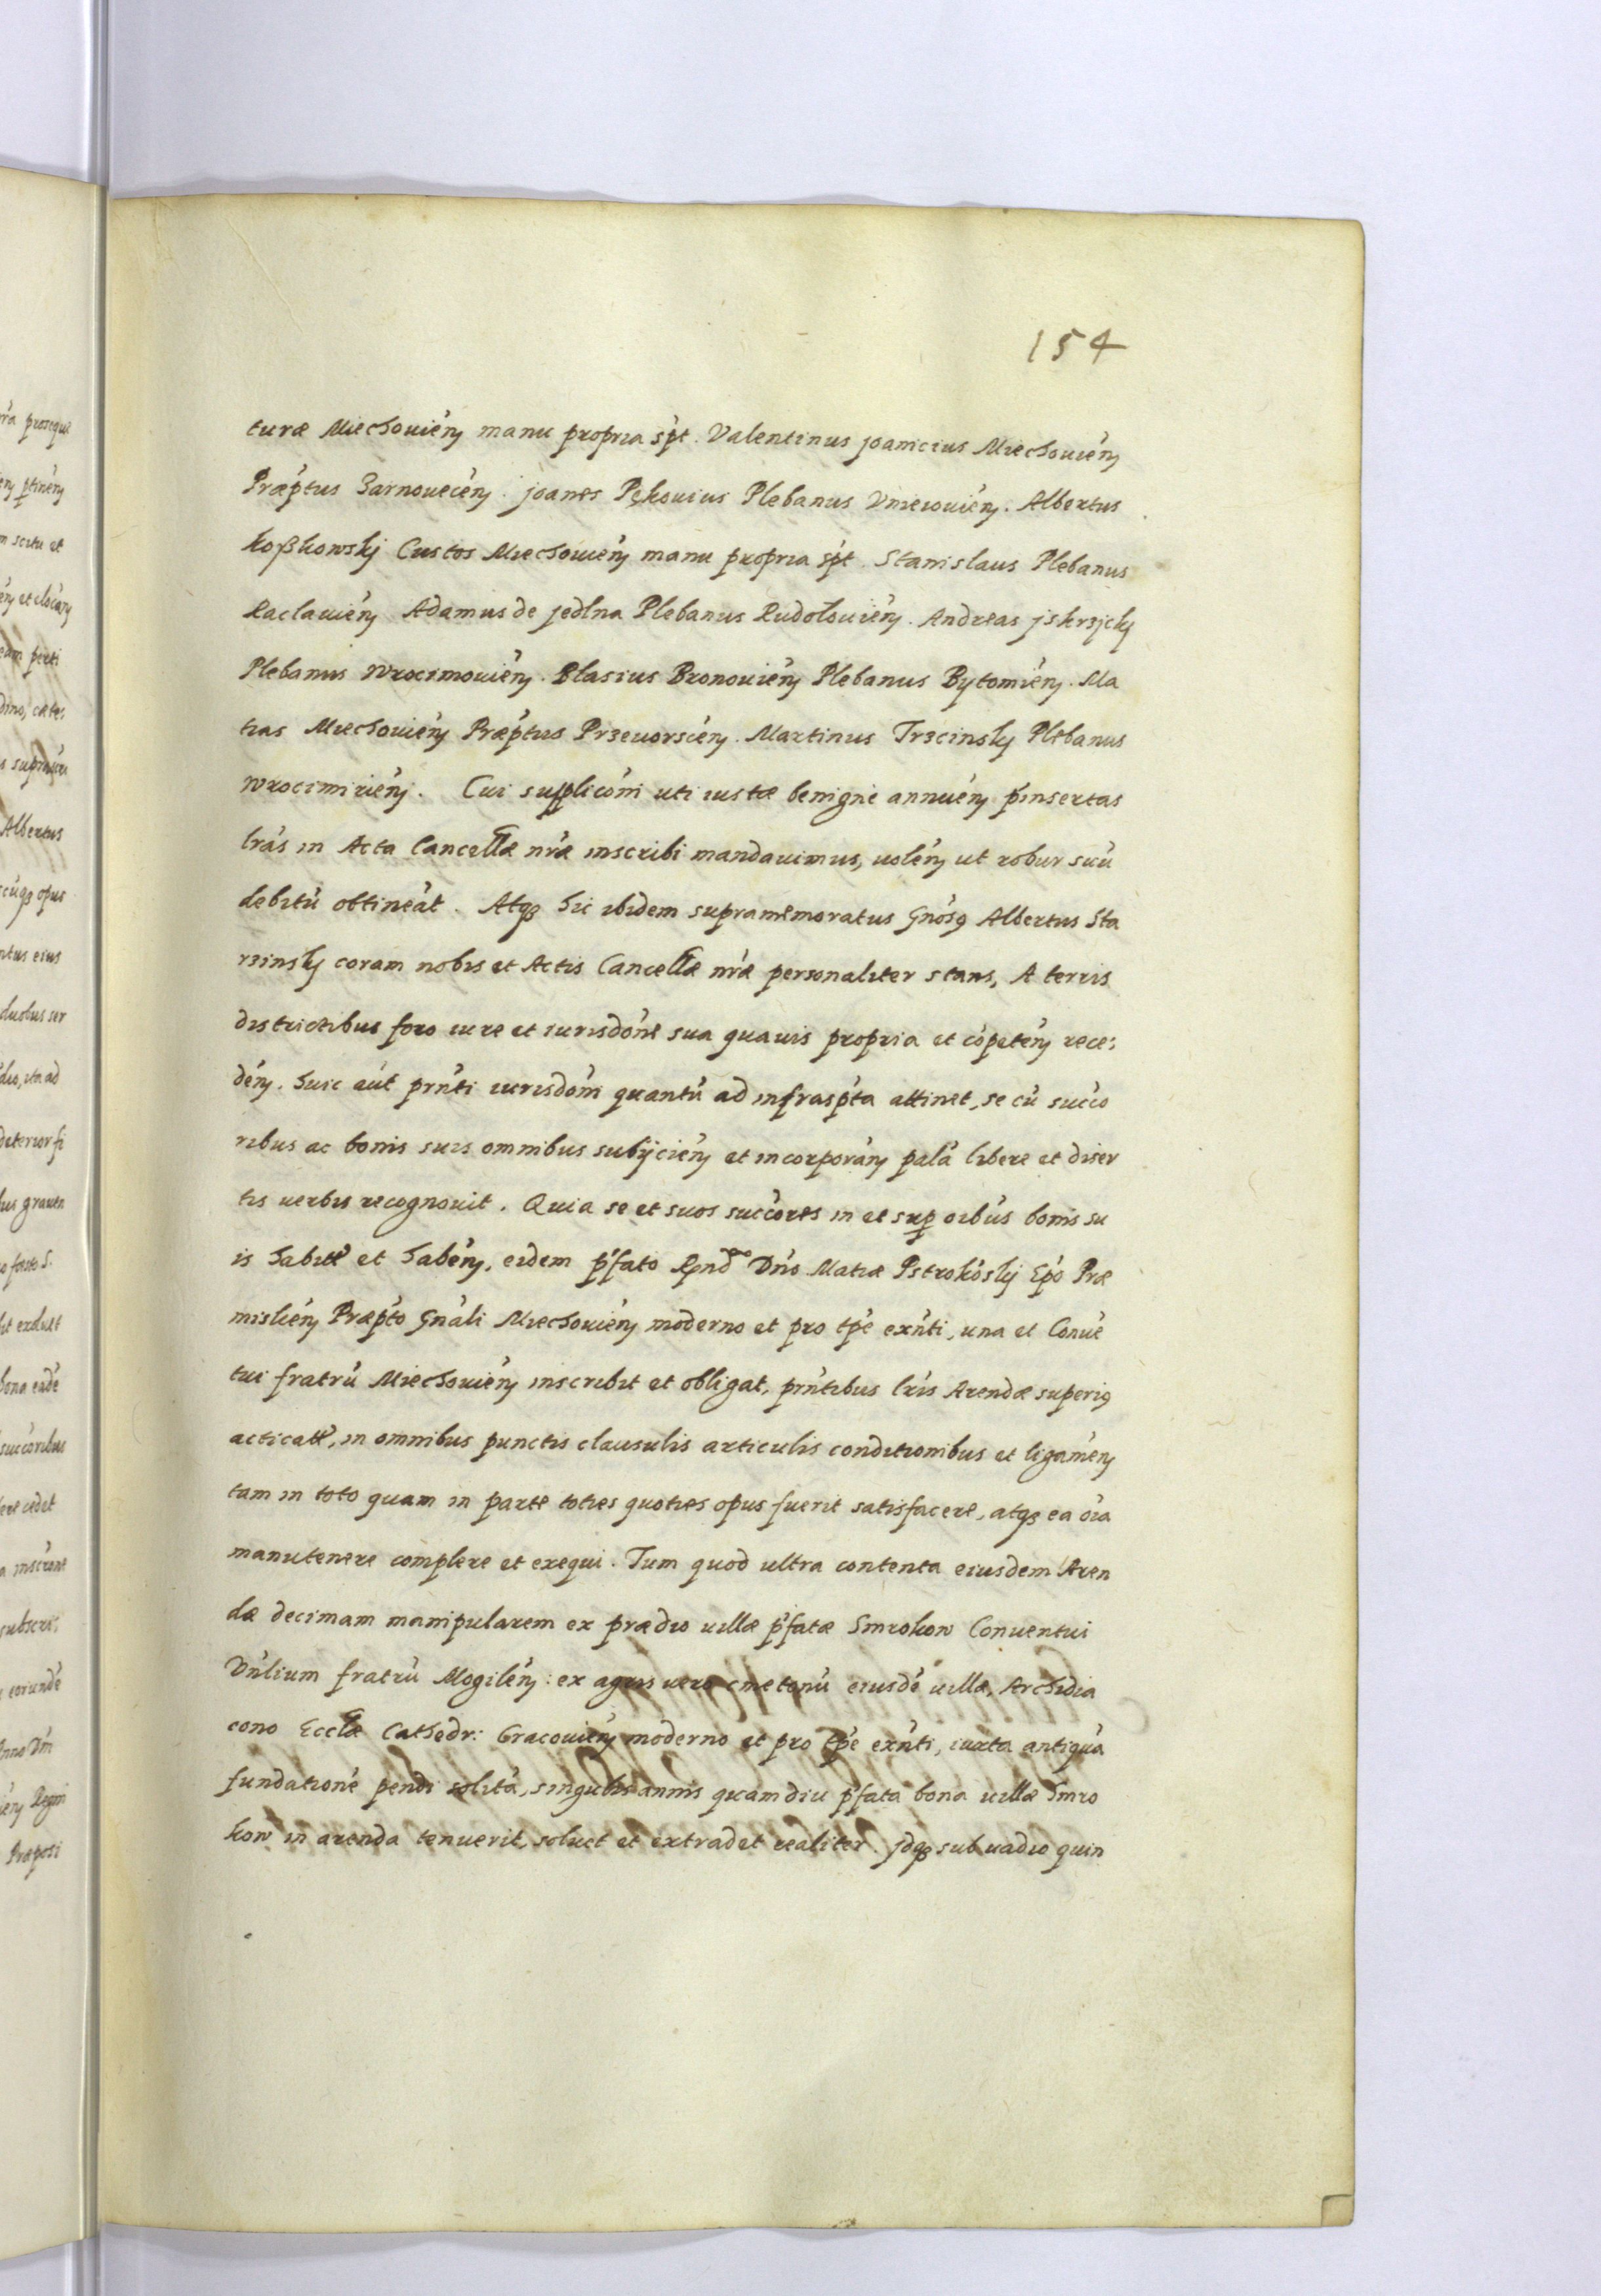 154
turæ Miechouień manu propria spt. Valentinus joanicius Miechouień
Præptus Zarnouecień. joanes Pękouius Plebanus Vnieiouień. Albertus
koßkowskj Custos Miechouień manu propria spt. Stanislaus Plebanus
Raclauień Adamus de jedlna Plebanus Rudolouień. Andreas jskrzjckj
Plebanus Wrocimouień. Blasius Bronouień Plebanus Bytomień. Ma
tias Miechouień Præptus Przeuorscień. Martinus Trzcinskj Plebanus
Wrocimirień. Cui suppliconi uti iustæ benigne annueń pinsertas
lras in Acta Cancellæ nræ inscribi mandauimus, uoleń ut robur suu
debitu obtineat. Atq3 hic ibidem supramemoratus Gnosq Albertus Sta
rzinskj coram nobis et Actis Cancellæ nræ personaliter stans, A terris
districtibus foro iure et iurisdone sua quauis propria et copeteń rece:
deń. huic aut prnti iurisdoni quantu ad infraspta attinet, se cu succo
ribus ac bonis suis omnibus subijcień et incorporań pala libere et diser
tis uerbis recognouit. Quia se et suos succores in et sup oibus bonis su
is habitt et habeń, eidem pfato Rndo Dno Matiæ Pstrokoskj Epo Præ
mislień Præpto Gnali Miechouień moderno et pro tpe exnti, una et Conue
tui fratru Miechouień inscribit et obligat, prntibus lris Arendæ superiq
acticatt, in omnibus punctis clausulis articulis conditionibus et ligameń
tam in toto quam in parte toties quoties opus fuerit satisfacere, atq3 ea oia
manutenere complere et exequi. Tum quod ultra contenta eiusdem Aren
dæ decimam manipularem ex prædio uillæ pfatæ Smrokow Conuentui
Vnlium fratru Mogileń: ex agris uero cmetonu eiusde uillæ, Archidia
cono Ecclæ Cathedr: Cracouień moderno et pro tpe exnti, iuxta antiqua
fundatione pendi solita, singulis annis quamdiu pfata bona uillæ Smro
kow in arenda tenuerit, soluet et extradet realiter. jdq3 sub uadio quin